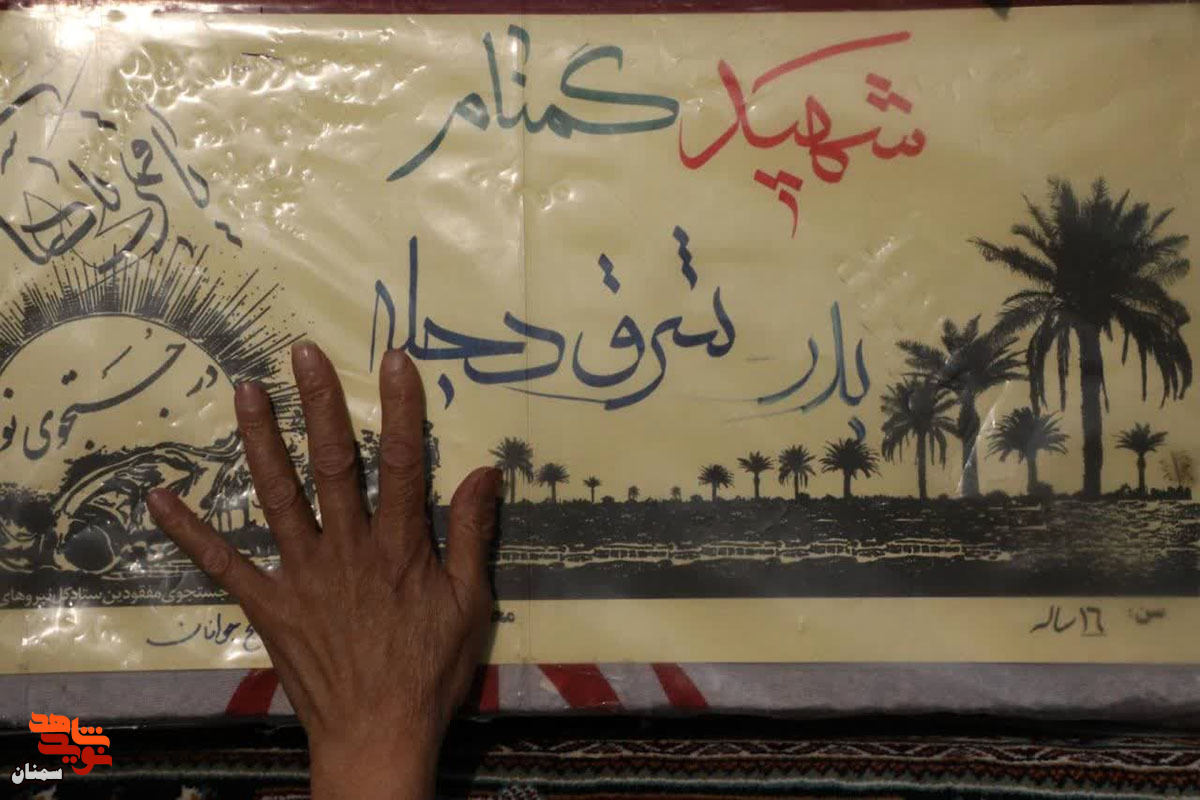 شهید گمنام
بدر شرق دجله
در جستجوی نو
جستجوی مفقودین ستاد کل نیروهای
سن: ۱۶ ساله
جوانان
نوید شاهد
سمنان